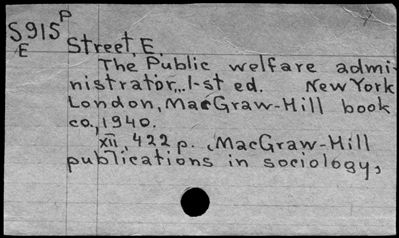 P
S915
E
Street, E.
The Public welfare admi-
nistrator,..1-st ed. New York
London, MacGraw-Hill book
co., 1940.
xii, 422 p. (MacGraw-Hill
publications in sociology,